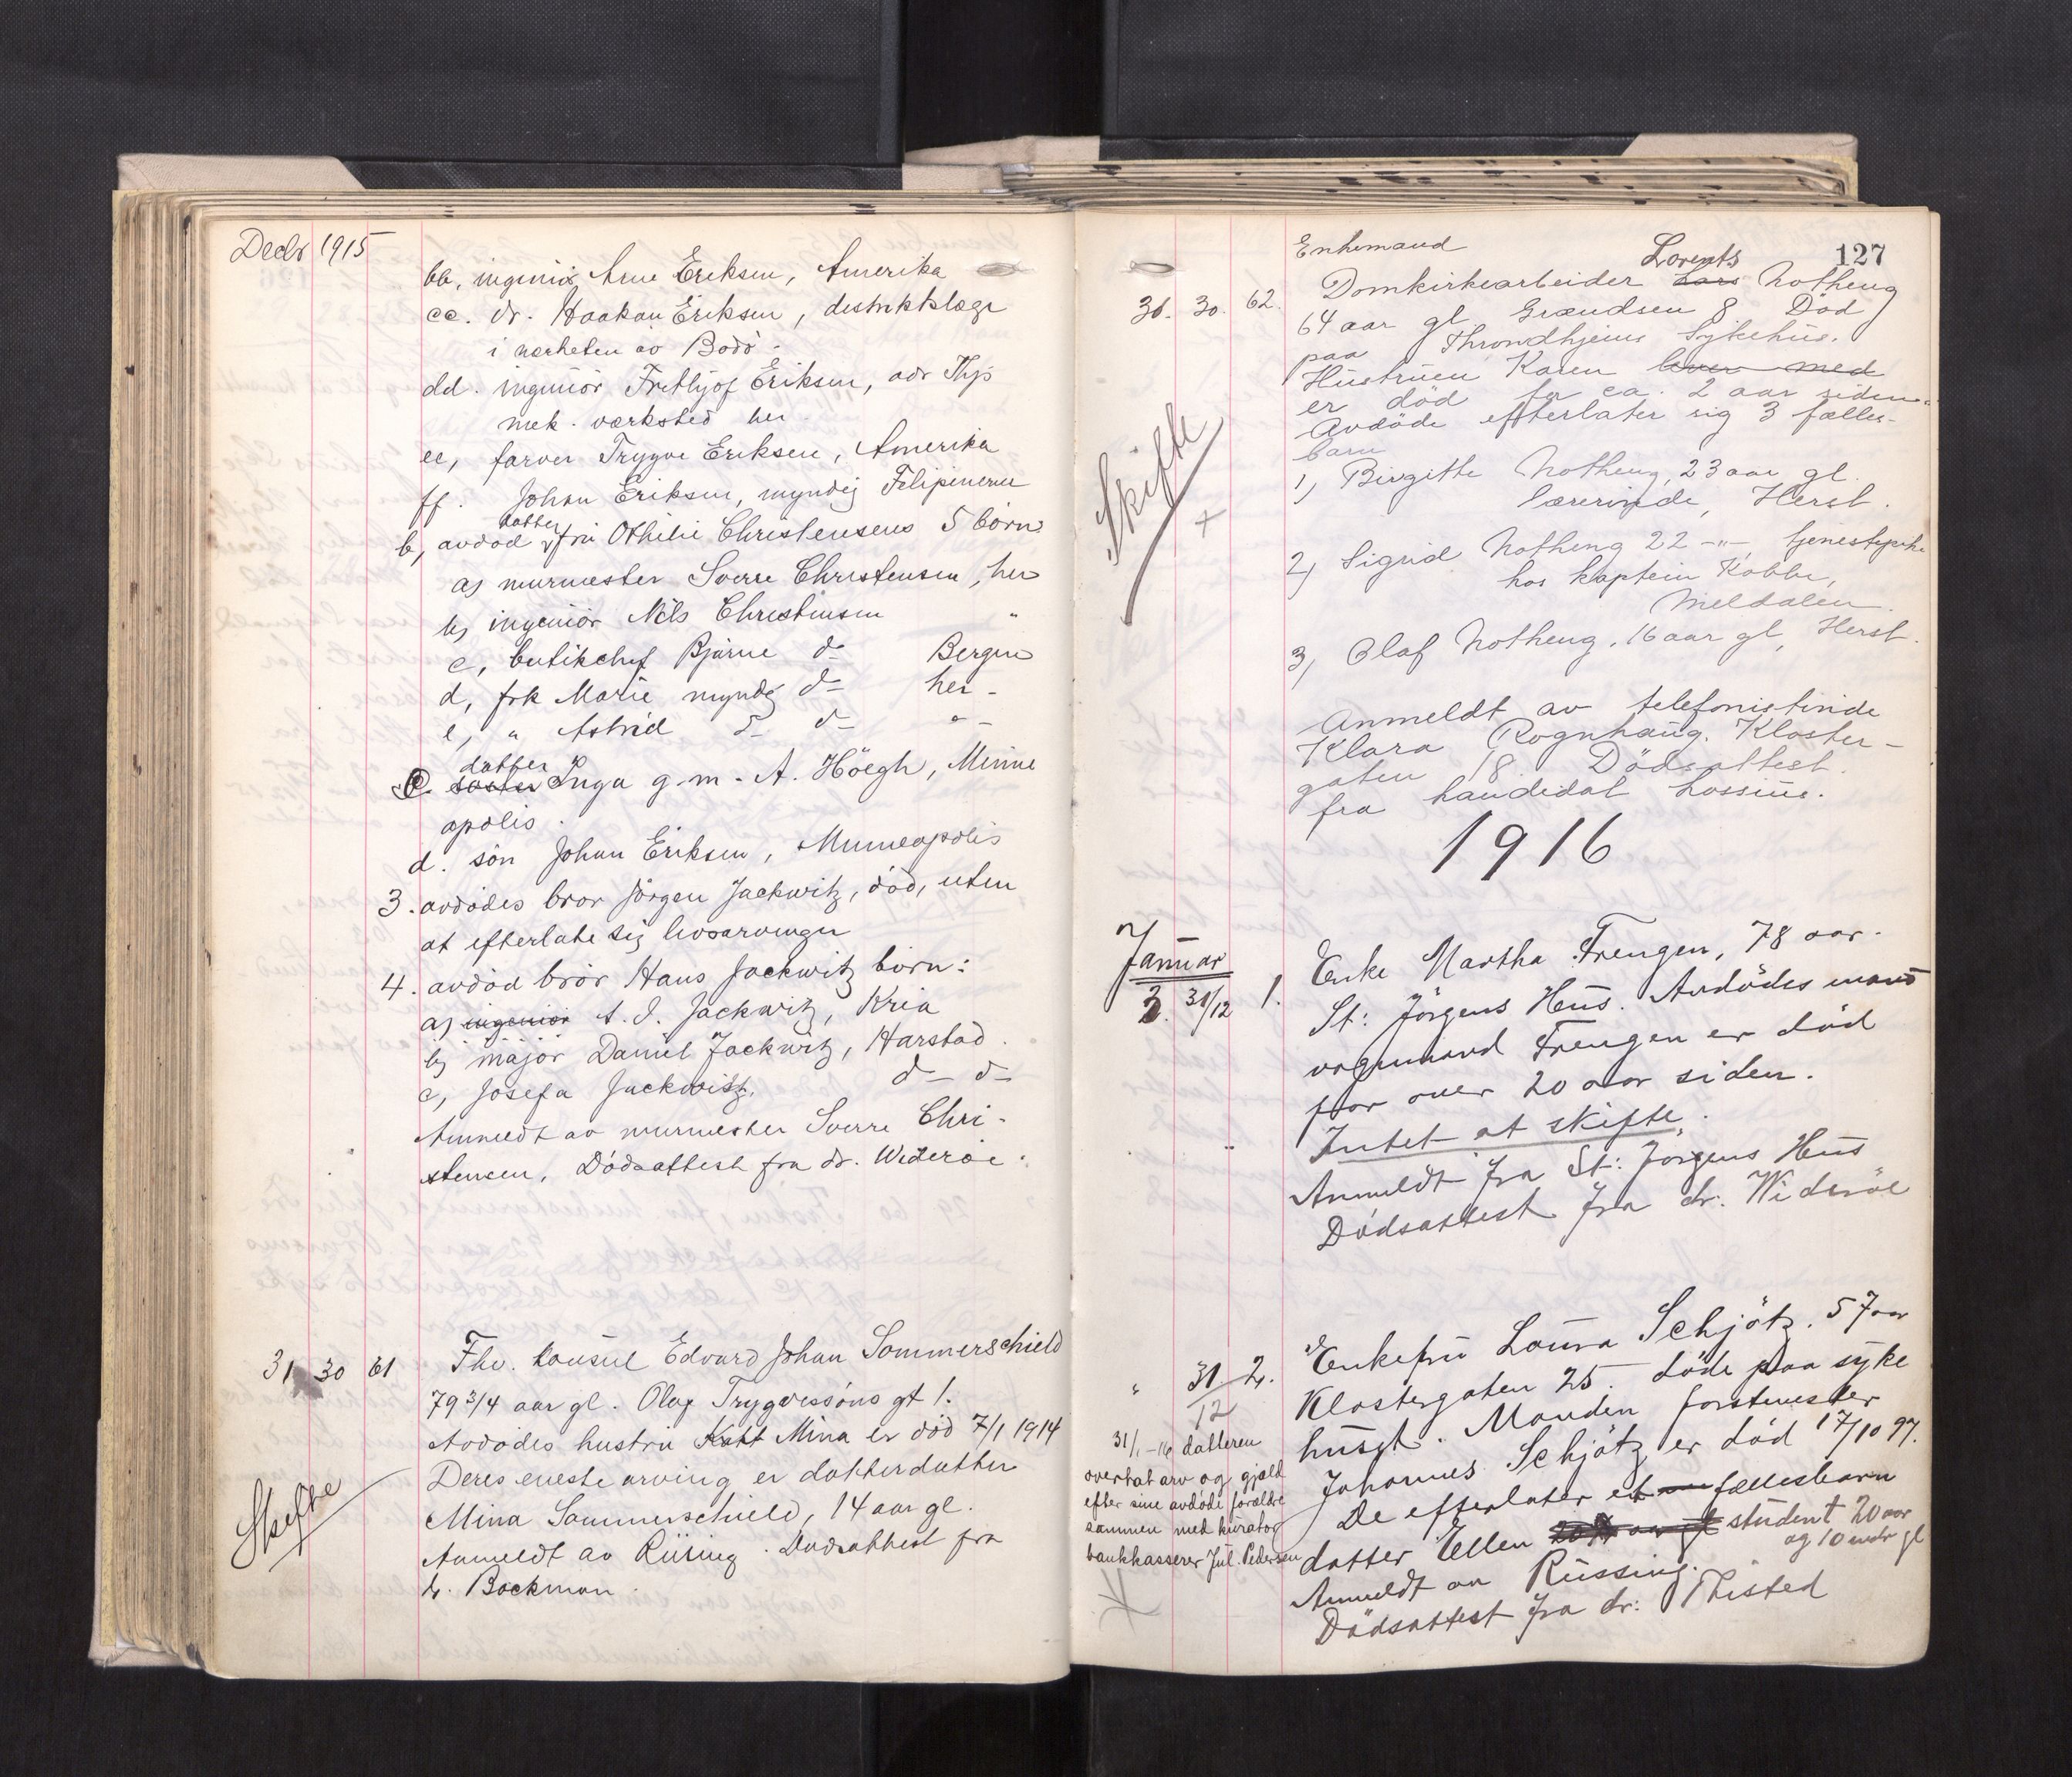 Decbr 1915
bb, ingeniör Arne Eriksen, Amerika
cc. dr. Haakon Eriksen, distriktslæge
i nærheten av Bodö.
dd. ingeniör Frithjof Eriksen, adr Thjs
mek. værksted her
ee, farver Trygve Eriksen, Amerika
ff. Johan Eriksen, myndig Filipinerne
b, avdöd datter fru Othilie Christensens 5 börn
a, murmester Sverre Christensen, her
b, ingeniör Nils Christensen "
c, butikchef Bjarne do Bergen
d, frk Marie myndig do her -
e, " Astrid do do " -
c. söster datter Inga g. m. A. Höegh, Minne
apolis.
d. sön Johan Eriksen, Minneapolis
3. avdödes bror Jörgen Jackwitz, död, uten
at efterlate sig livsarvinger
4. avdöd bror Hans Jackwitz börn:
a, ingeniör A. J. Jackwitz, Kria
b, major Daniel Jackwitz, Harstad.
c, Josefa Jackwitz, do do
Anmeldt av murmester Sverre Chri-
stensen, Dödsattest fra dr. Wideröe.
31 30 61 Fhv. konsul Edvard Johan Sommerschield
79 3/4 aar gl. Olav Trygvessöns gt 1.
Avdödes hustru Mina er död 7/1 1914
Deres eneste arving er datterdatter
Skifte
Mina Sommerschield, 14 aar gl.
Anmeldt av Rüsing. Dödsattest fra
dr. Backman.
127
Enkemand
Lorents
31. 30. 62. Domkirkearbeider Lars Notheng
64 aar gl Grændsen 8 Död
paa Throndhjems Sykehus.
Hustruen Karen lever med
er död for ca. 2 aar siden.
Avdöde efterlater sig 3 fælles-
barn
Skifte
1, Birgitte Notheng, 23 aar gl.
lærerinde, Herst.
2, Sigrid Notheng 22 -"- tjenestepike
hos kaptein Kobbe,
Meldalen.
3, Olaf Notheng, 16 aar gl, Herst.
Anmeldt av telefonistinde
Klara Rognhaug. Kloster-
gaten 18. Dödsattest
fra kandidat Lossius.
1916
Januar
3. 31/12 1. Enke Martha Frengen, 78 aar.
St: Jörgens Hus. Avdödes mand
vognmand Frengen er död
for over 20 aar siden.
Intet at skifte.
Anmeldt fra St: Jörgens Hus
Dödsattest fra dr. Wideröe
" 31/12 2. Enkefru Laura Schjötz. 57 aar
Klostergaten 25. döde paa syke
huset. Manden forstmester
Johannes Schjötz er död 17/10 97.
De efterlater et fællesbarn
datter Ellen student 20 aar
og 10 mdr gl
Anmeldt av Rüssing.
Dödsattest fra dr: Thisted
31/1-16 datteren
overtat arv og gjæld
efter sine avdöde forældre
sammen med kurator
bankkasserer Jul. Pedersen